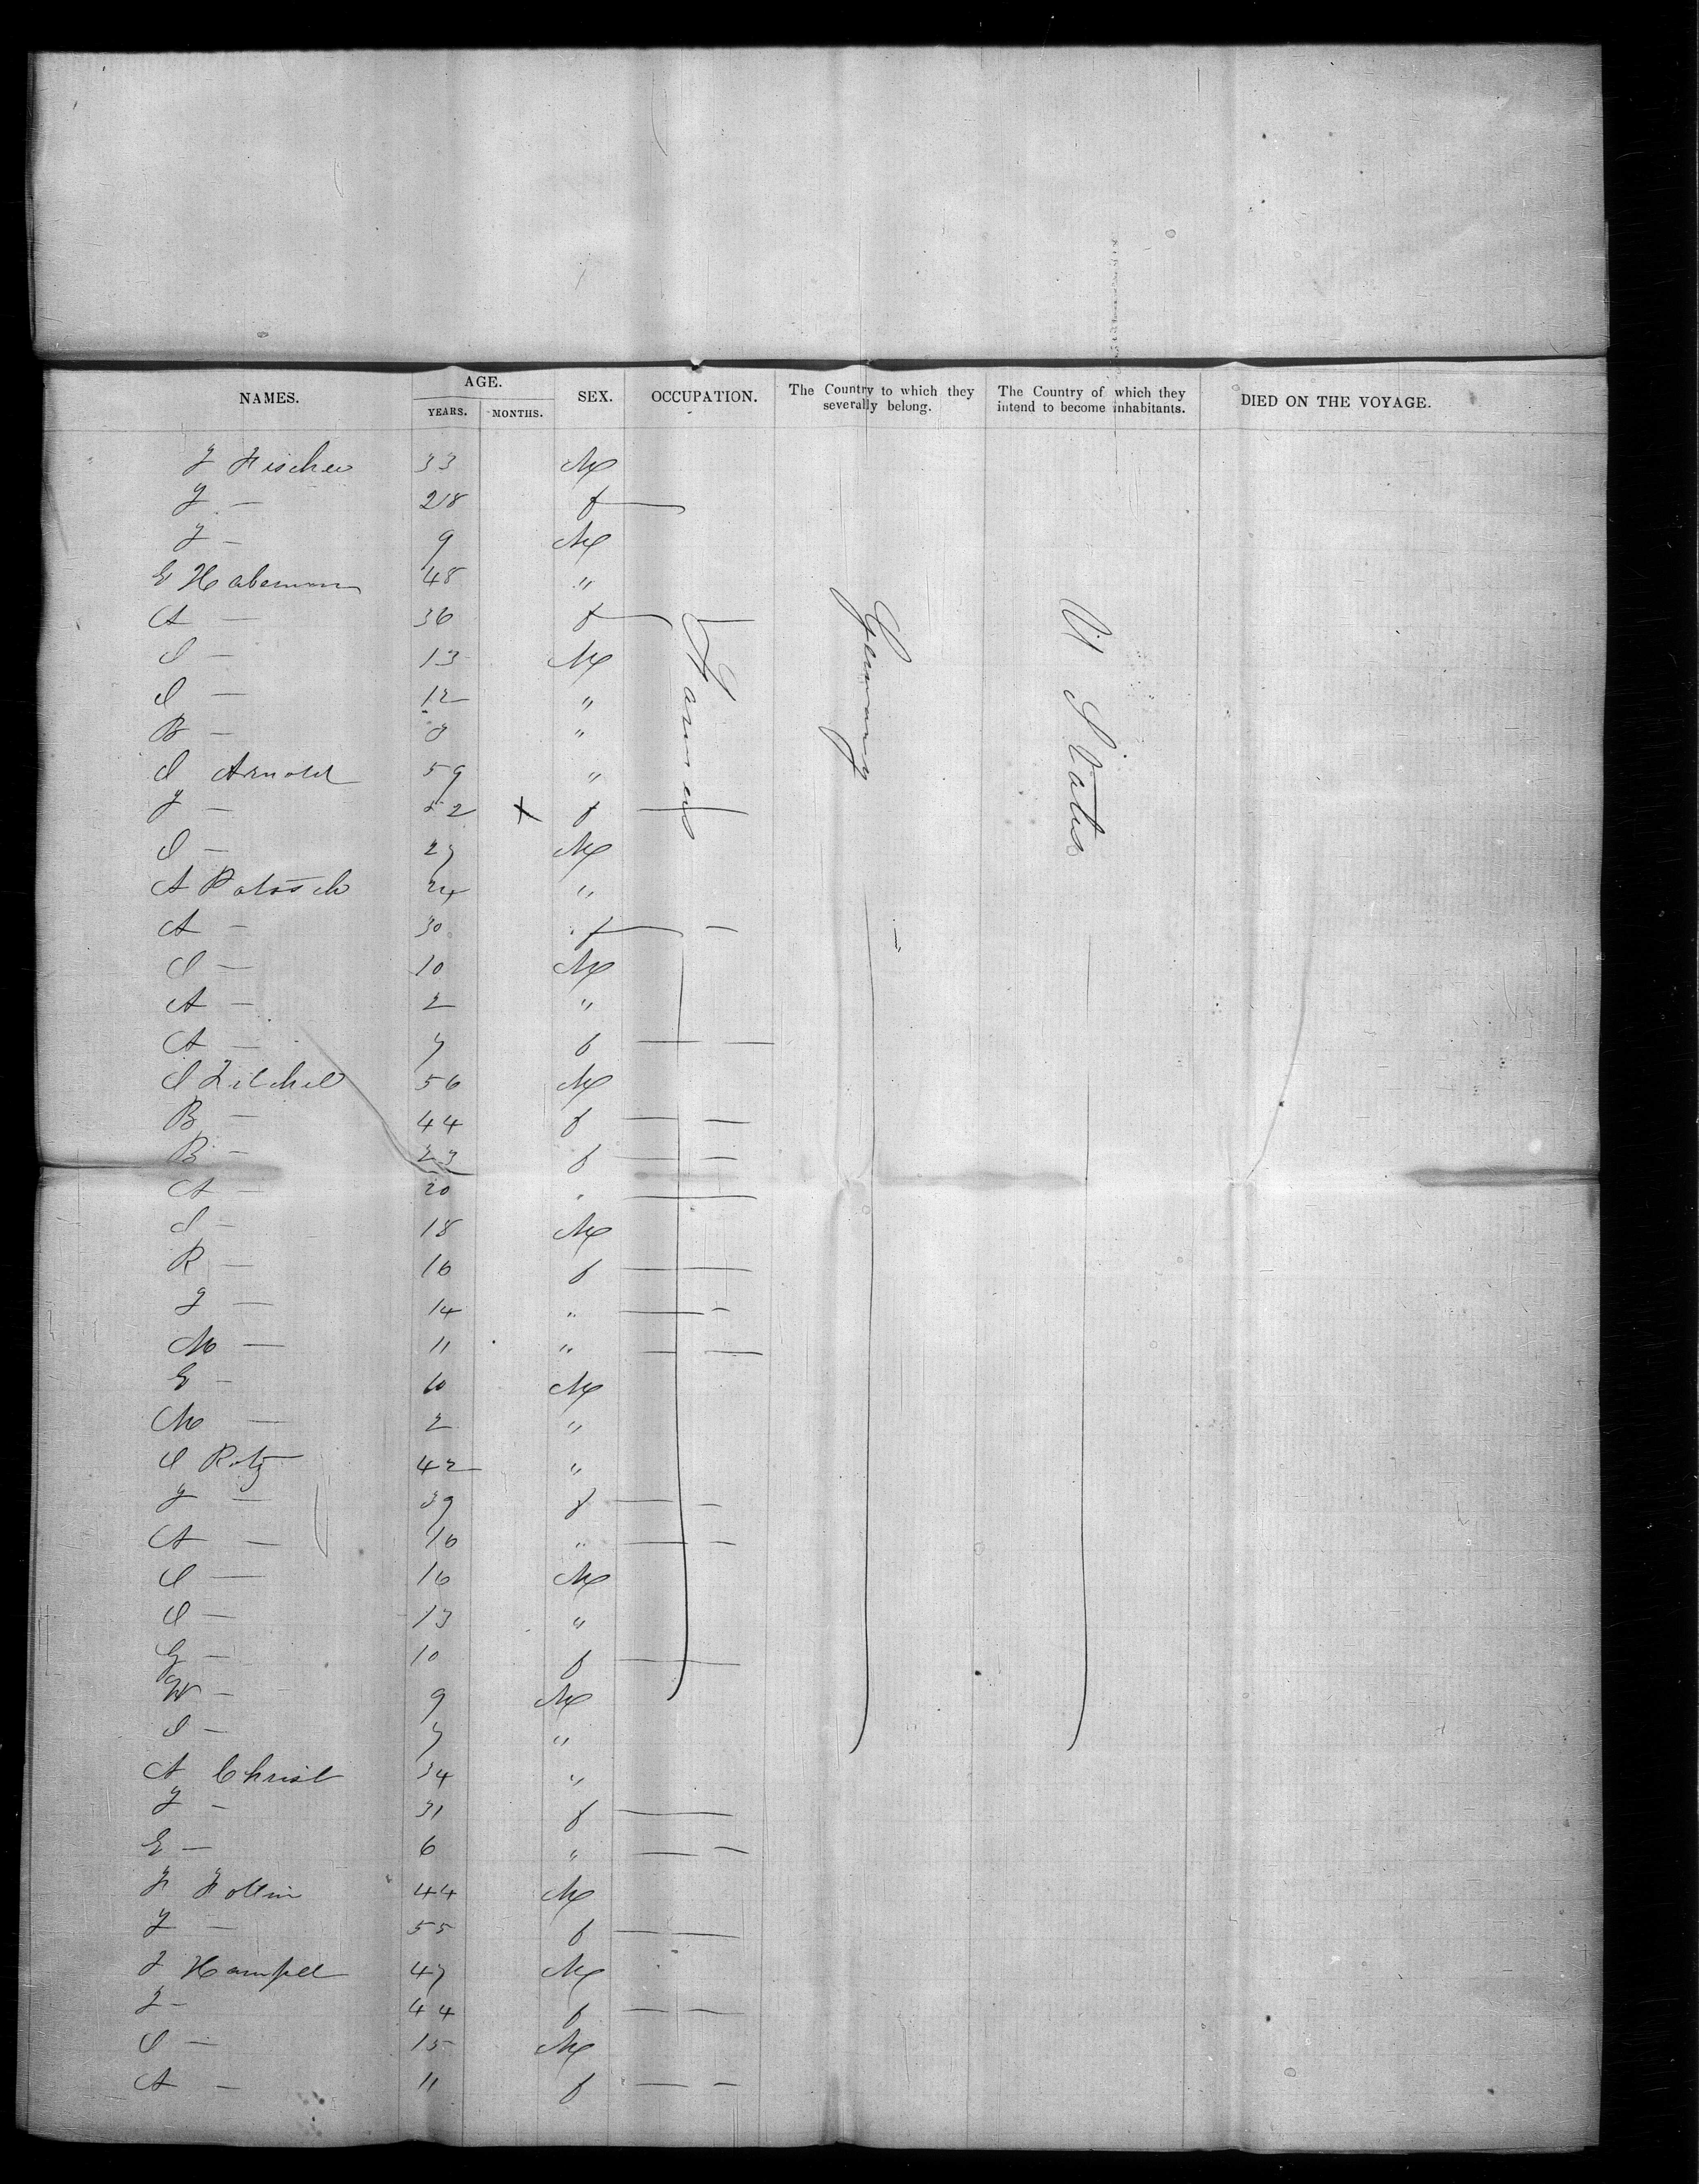 NAMES. AGE. SEX. OCCUPATION. The Country to which they severally belong. The Country of which they intend to become inhabitants. DIED ON THE VOYAGE.
YEARS. MONTHS.
J Fischer 33 M
J — 28 f —
J — 9 M
E Habermann 48 "
A — 36 f —
J — 13 M
J — 12 "
B — "
J Arnold 59 "
J — 52 X f —
J — 27 M
A 24 "
A — 30 f — —
J — 10 M
A — 2 "
A — 7 f — —
J 56 M
B — 44 f — —
B — 23 f — —
A — 20 " —
J — 18 M
R — 16 f —
J — 14 " — —
M — 11 " — —
E — 10 M
M — 2 "
J Rotz 42 "
J — 39 f — —
A — 16 " — —
J — 16 M
J — 13 "
G — 10 f —
W — 9 M
J — 7 "
A Christ 34 "
J — 31 f —
E — 6 " — —
F 44 M
J — 55 f —
J Hampel 47 M
J — 44 f — —
J — 15 M
A — 11 f — —
Farmers
Germany
U States